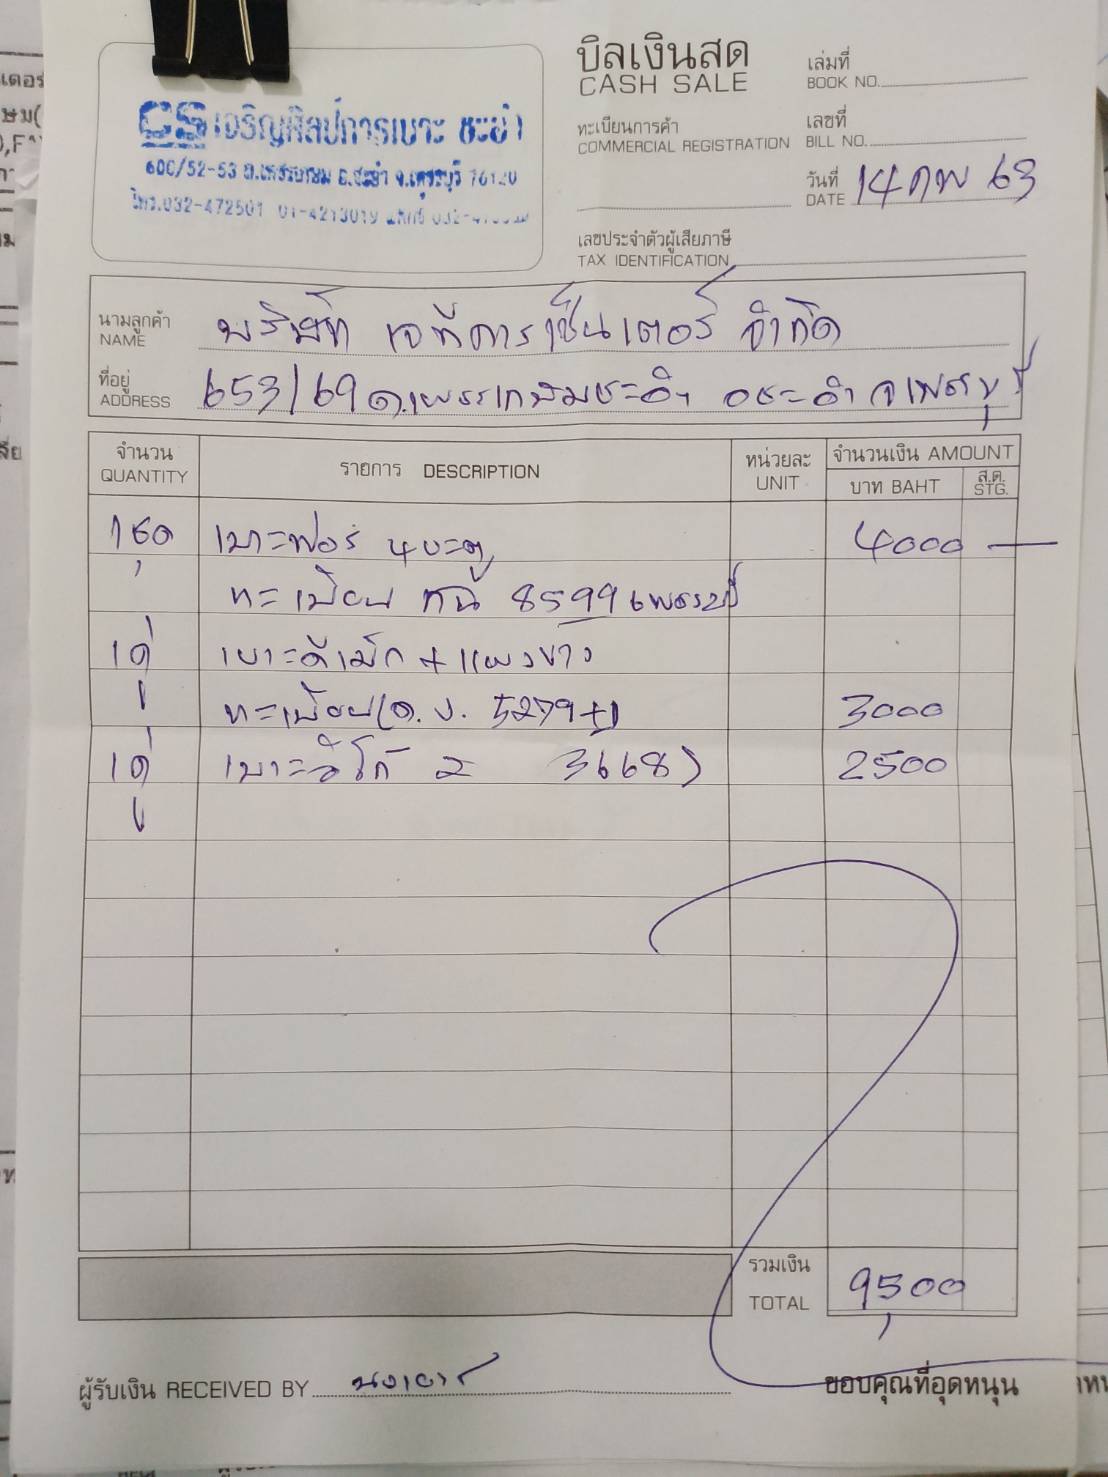 บิลเงินสด
CASH SALE
เล่มที่
BOOK NO.
ทะเบียนการค้า
COMMERCIAL REGISTRATION
เลขที่
BILL NO.
วันที่
DATE 14 กพ 63
เลขประจำตัวผู้เสียภาษี
TAX IDENTIFICATION
CS เจริญศิลป์การเบาะ ชะอำ
600/52-53 ถ.เพชรเกษม อ.ชะอำ จ.เพชรบุรี 76120
โทร.032-472501 01-4213019
นามลูกค้า
NAME
บริษัท เจทีคาร์เซ็นเตอร์ จำกัด
ที่อยู่
ADDRESS
653/69 ถ.เพชรเกษม ชะอำ อ ชะอำ จ เพชรบุรี
จำนวน
QUANTITY
รายการ DESCRIPTION
หน่วยละ
UNIT
จำนวนเงิน AMOUNT
บาท BAHT
ส.ต.
STG.
1 ชุด เบาะฟอร์ด 4 ประตู 4000 —
ทะเบียน 8599 เพชรบุรี
1 คู่ เบาะดีแม็ก + แผงข้าง
ทะเบียน 5279 3000
1 คู่ เบาะวีโก้ 3668) 2500
รวมเงิน
TOTAL
9,500
ผู้รับเงิน RECEIVED BY
ขอบคุณที่อุดหนุน